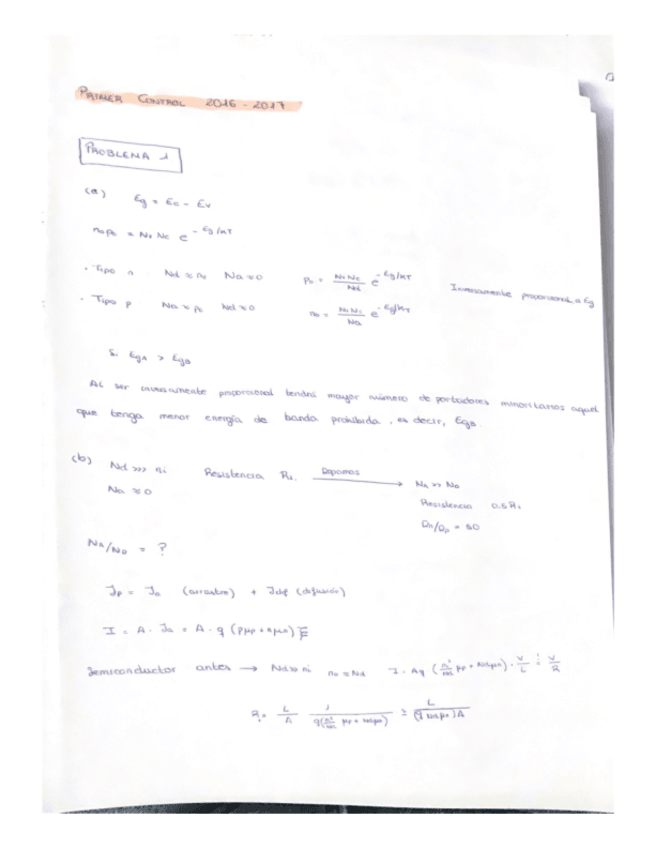 PRIMER CONTROL 2016 - 2017
PROBLEMA 1
(a) Eg = Ec - Ev
nopo = Nv Nc e^(-Eg/kT)
· Tipo n Nd ≈ no Na ≈ 0 Po = NvNc/Nd e^(-Eg/kT) Inversamente proporcional a Eg
· Tipo p Na ≈ po Nd ≈ 0 no = NvNc/Na e^(-Eg/kT)
Si EgA > EgB
Al ser inversamente proporcional tendrá mayor número de portadores minoritarios aquel
que tenga menor energía de banda prohibida, es decir, EgB.
(b) Nd >>> ni Resistencia R1 Dopamos → NA >> ND
Na ≈ 0 Resistencia 0.5 R1
Dn/Dp = 50
NA/ND = ?
Jp = Ja (arrastre) + Jdif (difusión)
I = A · Ja = A · q (pμp + nμn) E
Semiconductor antes → Nd >> ni no ≈ Nd